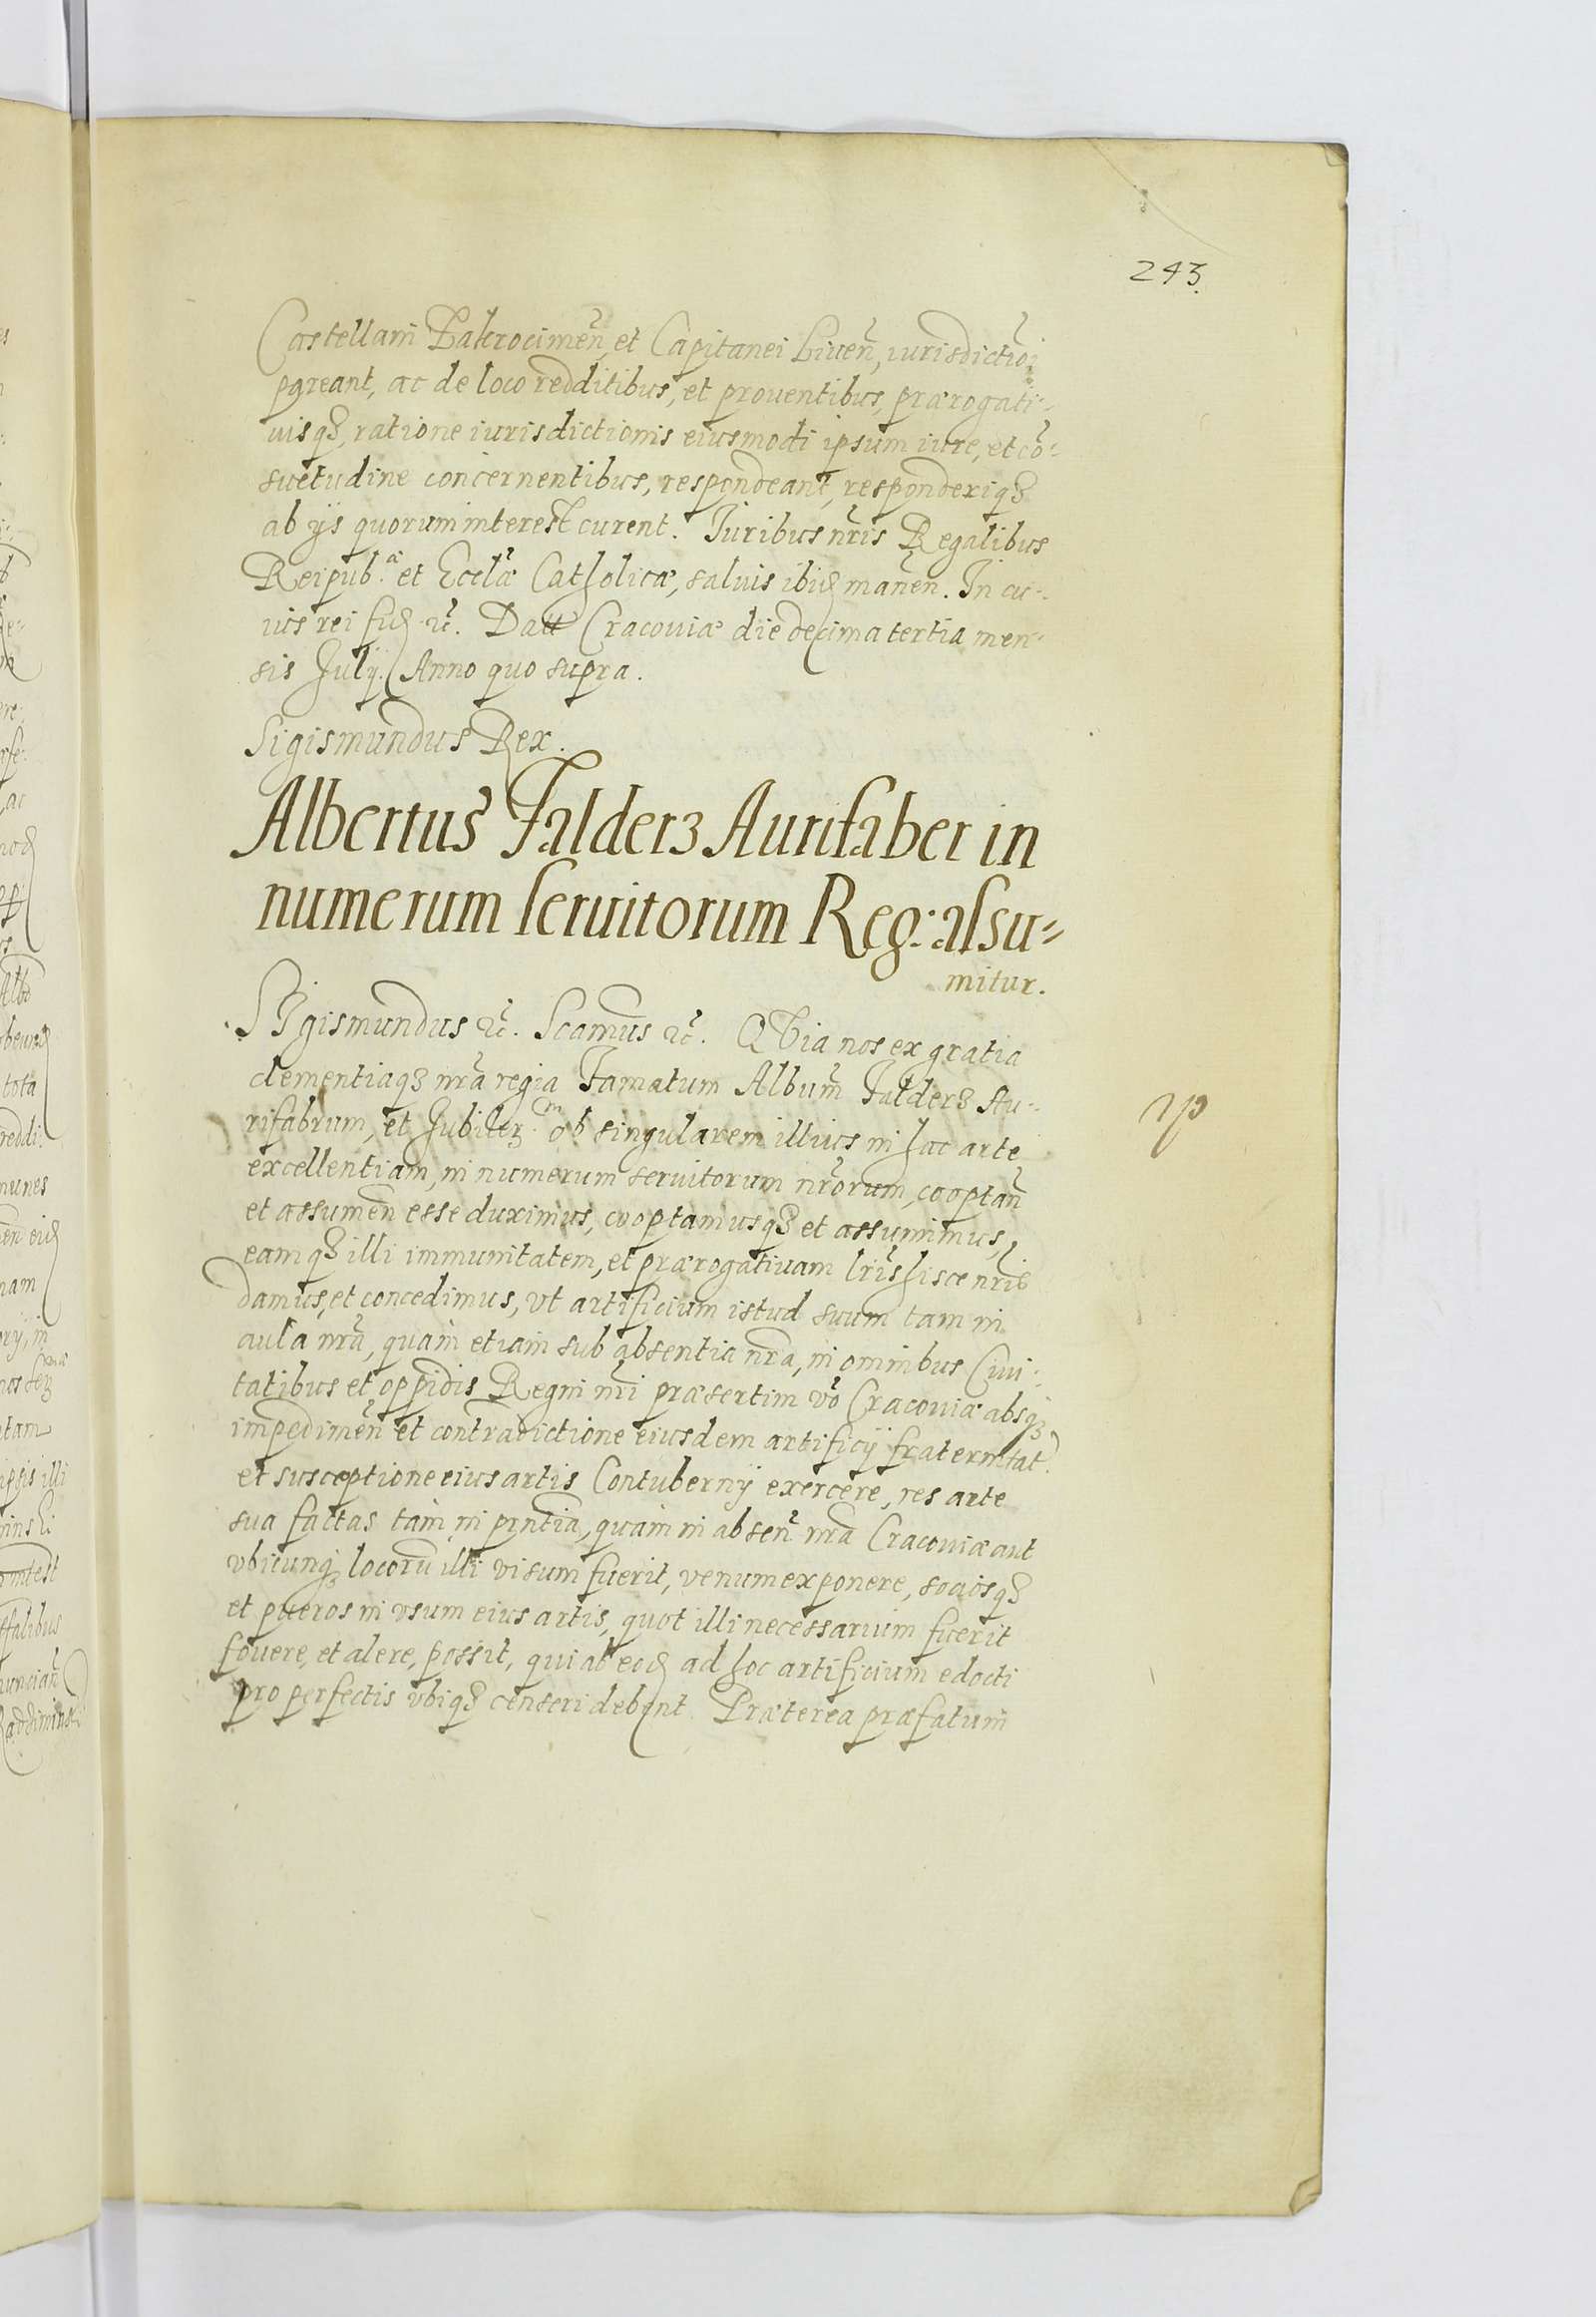 243.
Castellani Zakrocimen̄, et Capitanei Liuen̄, iurisdictioi
pareant, ac de loco redditibus, et prouentibus, prærogati-
uisq3, ratione iurisdictionis eiusmodi ipsum iure, et cō-
suetudine concernentibus, respondeant, responderiq3
ab ijs quorum interest curent. Iuribus nr̄is Regalibus
Reipub.æ et Eccl̄æ Catholicæ, saluis ibid manen̄. In cu-
ius rei fid etc̄. Datt Cracouiæ die decima tertia men-
sis July. Anno quo supra.
Sigismundus Rex.
Albertus Falderz Aurifaber in
numerum seruitorum Reg: assu=
mitur.
Sigismundus etc̄. Scamus etc̄. Quia nos ex gratia
clementiaq3 nr̄a regia Famatum Albūm Falderz Au-
rifabrum, et Jubiler3.m ob singularem illius in hac arte
excellentiam, in numerum seruitorum nr̄orum, cooptan̄
et assumen̄ esse duximus, cooptamusq3 et assumimus,
eamq3 illi immunitatem, et prærogatiuam lr̄is hisce nr̄is
damus, et concedimus, vt artificium istud suum tam in
aula nr̄a, quam etiam sub absentia nr̄a, in omnibus Ciui-
tatibus et oppidis Regni nr̄i præsertim vō Cracouiæ absq3
impedimen̄ et contradictione eiusdem artificij fraternitat.
et susceptione eius artis Contubernij exercere, res arte
sua factas tam in pr̄ntia, quam in absen̄ nr̄a Cracouiæ aut
vbicunq3 locorū illi visum fuerit, venum exponere, sociosq3
et pueros in vsum eius artis, quot illi necessarium fuerit
fouere, et alere, possit, qui ab eod ad hoc artificium edocti
pro perfectis vbiq3 censeri debent. Præterea præfatum